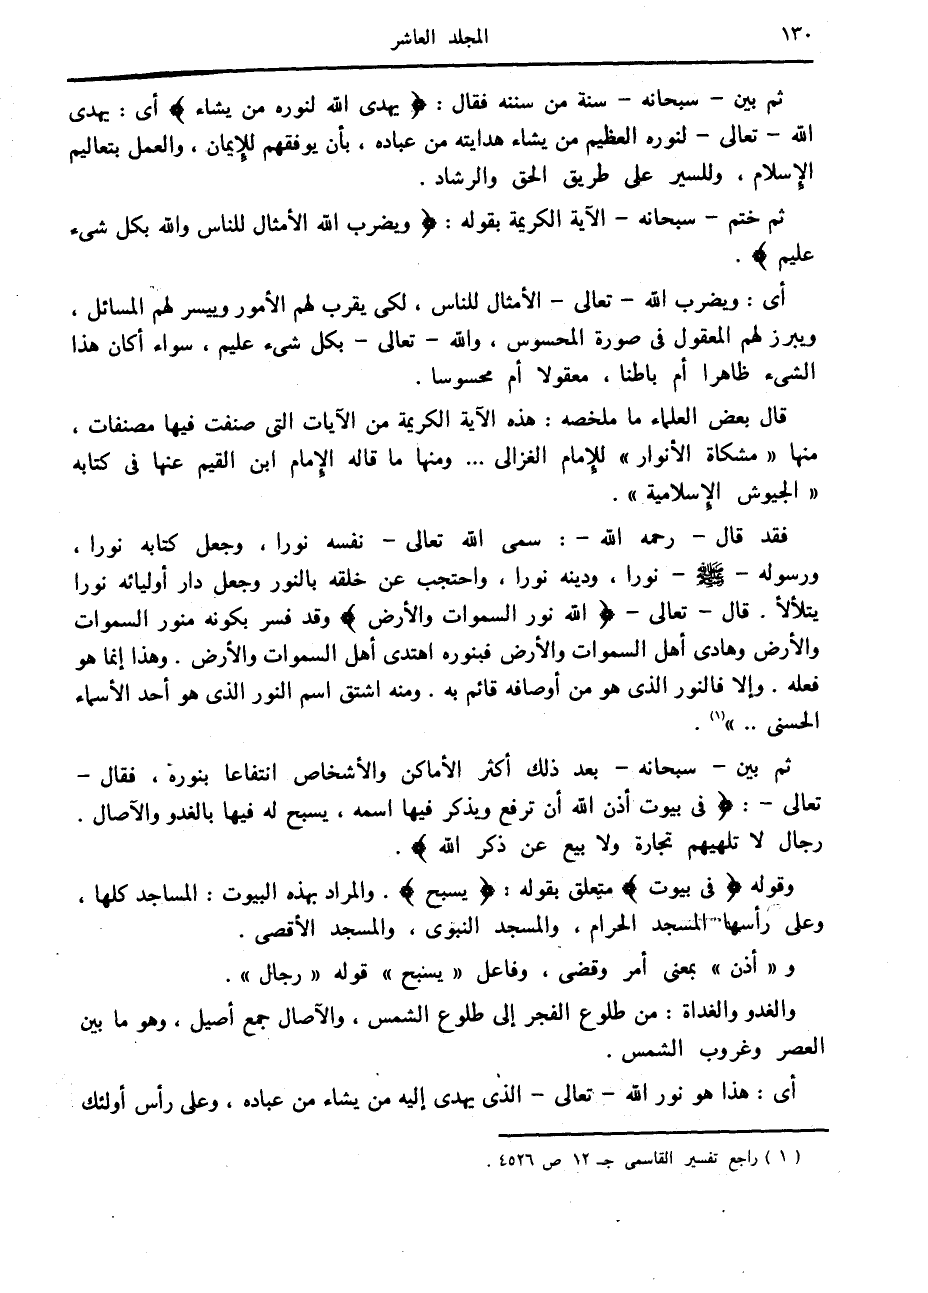 ١٣٠
المجلد العاشر
ثم بين – سبحانه – سنة من سننه فقال : ﴿ يهدى الله لنوره من يشاء ﴾ أى : يهدى
الله – تعالى – لنوره العظيم من يشاء هدايته من عباده ، بأن يوفقهم للإيمان ، والعمل بتعاليم
الإسلام ، وللسير على طريق الحق والرشاد .
ثم ختم – سبحانه – الآية الكريمة بقوله : ﴿ ويضرب الله الأمثال للناس والله بكل شىء
عليم ﴾ .
أى : ويضرب الله – تعالى – الأمثال للناس ، لكى يقرب لهم الأمور وييسر لهم المسائل ،
ويبرز لهم المعقول فى صورة المحسوس ، والله – تعالى – بكل شىء عليم ، سواء أكان هذا
الشىء ظاهرا أم باطنا ، معقولا أم محسوسا .
قال بعض العلماء ما ملخصه : هذه الآية الكريمة من الآيات التى صنفت فيها مصنفات ،
منها « مشكاة الأنوار » للإمام الغزالى ... ومنها ما قاله الإمام ابن القيم عنها فى كتابه
« الجيوش الإسلامية » .
فقد قال – رحمه الله – : سمى الله تعالى – نفسه نورا ، وجعل كتابه نورا ،
ورسوله – ﷺ – نورا ، ودينه نورا ، واحتجب عن خلقه بالنور وجعل دار أوليائه نورا
يتلألأ . قال – تعالى – ﴿ الله نور السموات والأرض ﴾ وقد فسر بكونه منور السموات
والأرض وهادى أهل السموات والأرض فبنوره اهتدى أهل السموات والأرض . وهذا إنما هو
فعله . وإلا فالنور الذى هو من أوصافه قائم به . ومنه اشتق اسم النور الذى هو أحد الأسماء
الحسنى .. »(١) .
ثم بين – سبحانه – بعد ذلك أكثر الأماكن والأشخاص انتفاعا بنوره ، فقال –
تعالى – : ﴿ فى بيوت أذن الله أن ترفع ويذكر فيها اسمه ، يسبح له فيها بالغدو والآصال .
رجال لا تلهيهم تجارة ولا بيع عن ذكر الله ﴾ .
وقوله ﴿ فى بيوت ﴾ متعلق بقوله : ﴿ يسبح ﴾ . والمراد بهذه البيوت : المساجد كلها ،
وعلى رأسها المسجد الحرام ، والمسجد النبوى ، والمسجد الأقصى .
و « أذن » بمعنى أمر وقضى ، وفاعل « يسبح » قوله « رجال » .
والغدو والغداة : من طلوع الفجر إلى طلوع الشمس ، والآصال جمع أصيل ، وهو ما بين
العصر وغروب الشمس .
أى : هذا هو نور الله – تعالى – الذى يهدى إليه من يشاء من عباده ، وعلى رأس أولئك
( ١ ) راجع تفسير القاسمى جـ ١٢ ص ٤٥٢٦ .